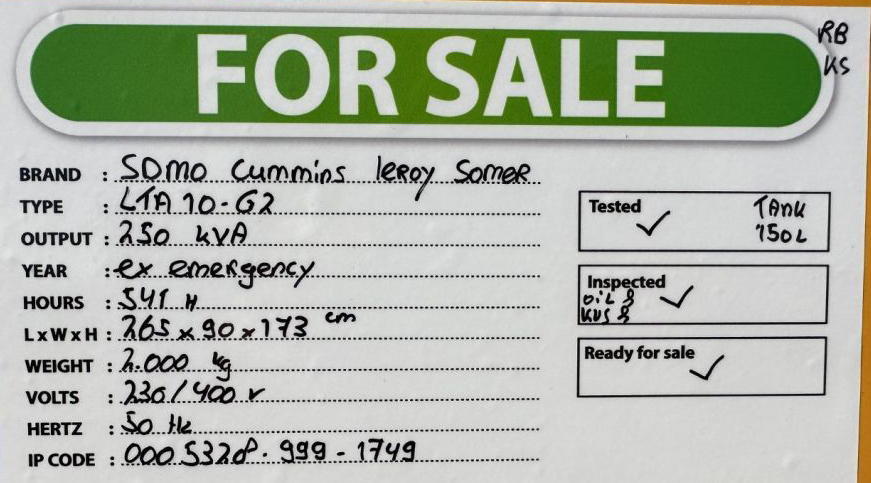 FOR SALE
RB
KS
BRAND : SDMO Cummins leROY SomeR
TYPE : LTA 10-G2
OUTPUT : 250 kVA
YEAR : ex emeRgency
HOURS : 541 H
L x W x H : 265 x 90 x 173 cm
WEIGHT : 2.000 kg
VOLTS : 230/400 V
HERTZ : 50 Hz
IP CODE : 000 5320. 999 - 1749
Tested TAnk
150L
Inspected
OiL &
KVS &
Ready for sale